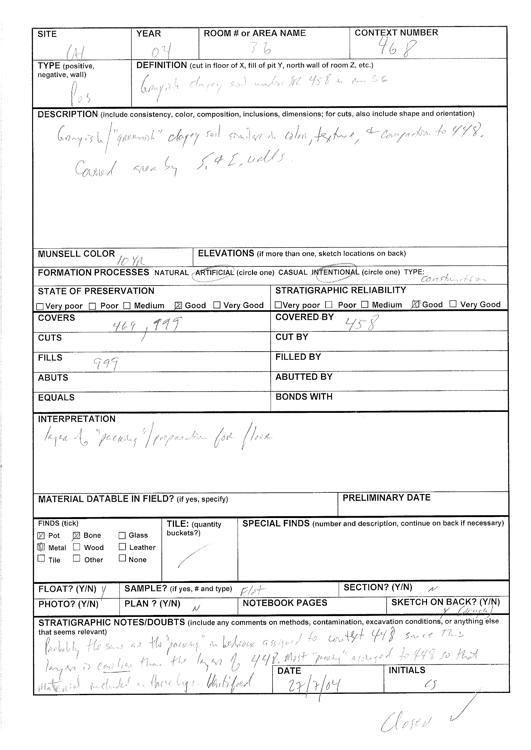 SITE YEAR ROOM # or AREA NAME CONTEXT NUMBER
04 36 468
TYPE (positive, negative, wall) DEFINITION (cut in floor of X, fill of pit Y, north wall of room Z, etc.)
Pos Grayish clayey soil under 458 in rm 36
DESCRIPTION (include consistency, color, composition, inclusions, dimensions; for cuts, also include shape and orientation)
Grayish/"greenish" clayey soil similar in color, texture, & compaction to 448.
Covered area by S. & E. walls.
MUNSELL COLOR 10 YR ELEVATIONS (if more than one, sketch locations on back)
FORMATION PROCESSES NATURAL ARTIFICIAL (circle one) CASUAL INTENTIONAL (circle one) TYPE: construction
STATE OF PRESERVATION STRATIGRAPHIC RELIABILITY
Very poor Poor Medium Good Very Good Very poor Poor Medium Good Very Good
COVERS 469, 999 COVERED BY 458
CUTS CUT BY
FILLS 999 FILLED BY
ABUTS ABUTTED BY
EQUALS BONDS WITH
INTERPRETATION
layer of "packing"/preparation for floor
MATERIAL DATABLE IN FIELD? (if yes, specify) PRELIMINARY DATE
FINDS (tick) TILE: (quantity buckets?) SPECIAL FINDS (number and description, continue on back if necessary)
Pot Bone Glass
Metal Wood Leather
Tile Other None
FLOAT? (Y/N) Y SAMPLE? (if yes, # and type) Flot SECTION? (Y/N) N
PHOTO? (Y/N) PLAN ? (Y/N) N NOTEBOOK PAGES SKETCH ON BACK? (Y/N)
Y
STRATIGRAPHIC NOTES/DOUBTS (include any comments on methods, contamination, excavation conditions, or anything else that seems relevant)
Probably the same as the "packing" assigned to context 448 since this
layer is earlier than the layers of 448. Most "packing" assigned to 448 so that
material included in those layers
DATE INITIALS
27/7/04 CS
Closed ✓